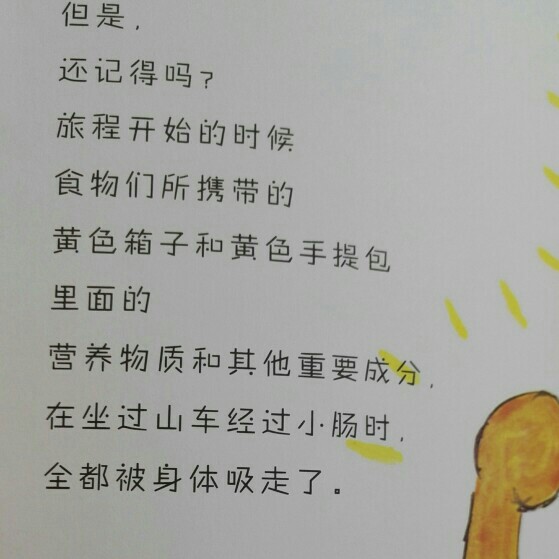 但是，
还记得吗？
旅程开始的时候
食物们所携带的
黄色箱子和黄色手提包
里面的
营养物质和其他重要成分，
在坐过山车经过小肠时，
全都被身体吸走了。